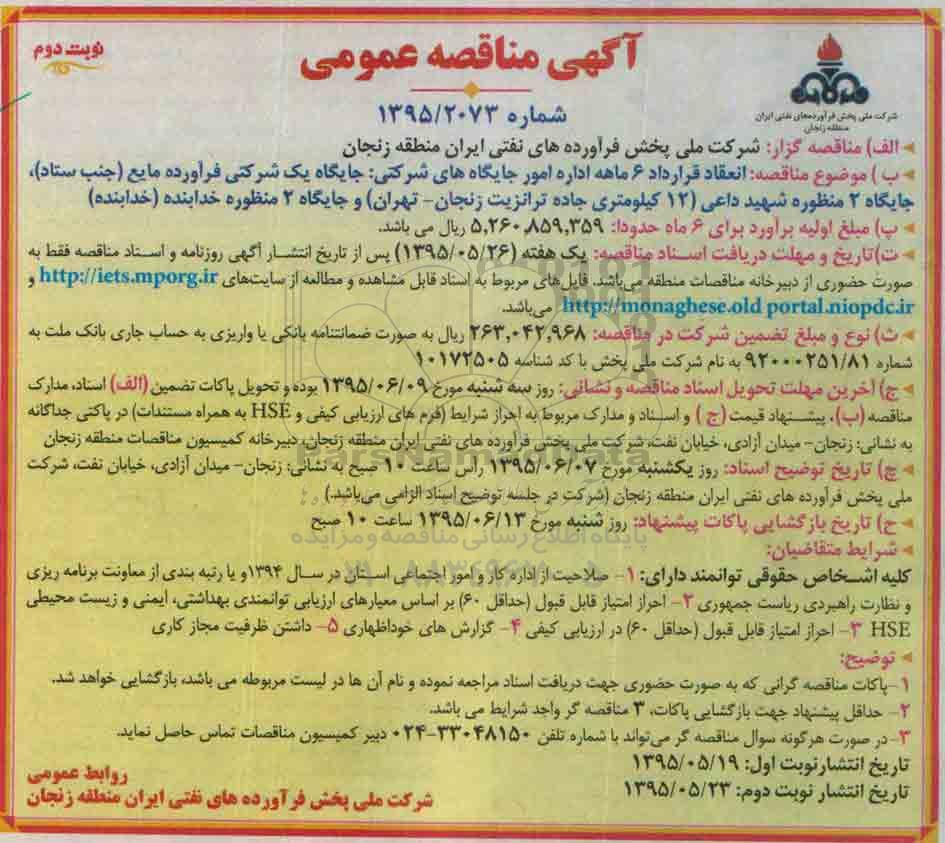 آگهی مناقصه عمومی
نوبت دوم
شماره ۱۳۹۵/۲۰۷۳
شرکت ملی پخش فرآورده‌های نفتی ایران
منطقه زنجان
الف) مناقصه گزار: شرکت ملی پخش فرآورده های نفتی ایران منطقه زنجان
ب) موضوع مناقصه: انعقاد قرارداد ۶ ماهه اداره امور جایگاه های شرکتی: جایگاه یک شرکتی فرآورده مایع (جنب ستاد)،
جایگاه ۲ منظوره شهید داعی (۱۲ کیلومتری جاده ترانزیت زنجان- تهران) و جایگاه ۲ منظوره خدابنده (خدابنده)
پ) مبلغ اولیه برآورد برای ۶ ماه حدودا: ۵,۲۶۰,۸۵۹,۳۵۹ ریال می باشد.
ت)تاریخ و مهلت دریافت اسـناد مناقصه: یک هفته (۱۳۹۵/۰۵/۲۶) پس از تاریخ انتشـار آگهی روزنامه و اسـناد مناقصه فقط به
صورت حضوری از دبیرخانه مناقصات منطقه می‌باشد. فایل‌های مربوط به اسناد قابل مشاهده و مطالعه از سایت‌های http://iets.mporg.ir و
http://monaghese.old portal.niopdc.ir می‌باشد.
ث) نوع و مبلغ تضمین شرکت در مناقصه: ۲۶۳,۰۴۲,۹۶۸ ریال به صورت ضمانتنامه بانکی یا واریزی به حساب جاری بانک ملت به
شماره ۹۲۰۰۰۲۵۱/۸۱ به نام شرکت ملی پخش با کد شناسه ۱۰۱۷۲۵۰۵
ج) آخرین مهلت تحویل اسناد مناقصه و نشانی: روز سه شنبه مورخ ۱۳۹۵/۰۶/۰۹ بوده و تحویل پاکات تضمین (الف) اسناد، مدارک
مناقصه (ب)، پیشـنهاد قیمت (ج) و اسـناد و مدارک مربوط به احراز شرایط (فرم های ارزیابی کیفی و HSE به همراه مستندات) در پاکتی جداگانه
به نشانی: زنجان- میدان آزادی، خیابان نفت، شرکت ملی پخش فرآورده های نفتی ایران منطقه زنجان، دبیرخانه کمیسیون مناقصات منطقه زنجان
چ) تاریخ توضیح اسناد: روز یکشنبه مورخ ۱۳۹۵/۰۶/۰۷ رأس ساعت ۱۰ صبح به نشانی: زنجان- میدان آزادی، خیابان نفت، شرکت
ملی پخش فرآورده های نفتی ایران منطقه زنجان (شرکت در جلسه توضیح اسناد الزامی می‌باشد.)
ح) تاریخ بازگشایی پاکات پیشنهاد: روز شنبه مورخ ۱۳۹۵/۰۶/۱۳ ساعت ۱۰ صبح
شرایط متقاضیان:
کلیه اشـخاص حقوقی توانمند دارای: ۱- صلاحیت از اداره کار و امور اجتماعی اسـتان در سـال ۱۳۹۴و یا رتبه بندی از معاونت برنامه ریزی
و نظارت راهبردی ریاست جمهوری ۲- احراز امتیاز قابل قبول (حداقل ۶۰) بر اساس معیارهای ارزیابی توانمندی بهداشتی، ایمنی و زیست محیطی
HSE ۳- احراز امتیاز قابل قبول (حداقل ۶۰) در ارزیابی کیفی ۴- گزارش های خوداظهاری ۵- داشتن ظرفیت مجاز کاری
توضیح:
۱-پاکات مناقصه گرانی که به صورت حضوری جهت دریافت اسناد مراجعه نموده و نام آن ها در لیست مربوطه می باشد، بازگشایی خواهد شد.
۲- حداقل پیشنهاد جهت بازگشایی پاکات، ۳ مناقصه گر واجد شرایط می باشد.
۳-در صورت هرگونه سوال مناقصه گر می‌تواند با شماره تلفن ۳۳۰۴۸۱۵۰-۰۲۴ دبیر کمیسیون مناقصات تماس حاصل نماید.
تاریخ انتشارنوبت اول: ۱۳۹۵/۰۵/۱۹
تاریخ انتشار نوبت دوم: ۱۳۹۵/۰۵/۲۳
روابط عمومی
شرکت ملی پخش فرآورده های نفتی ایران منطقه زنجان
ParsNamadData
پایگاه اطلاع رسانی مناقصه و مزایده